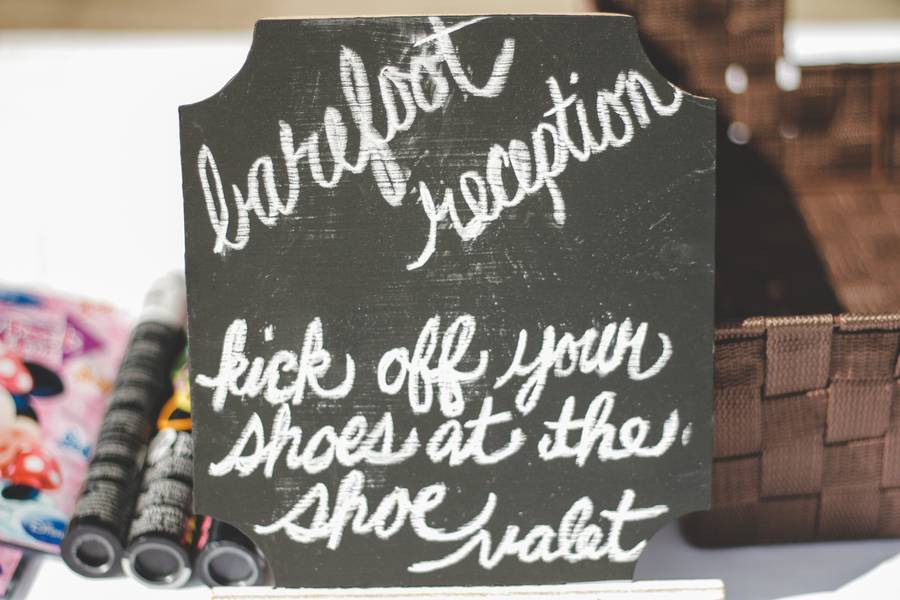 barefoot
reception
kick off your
shoes at the
shoe valet